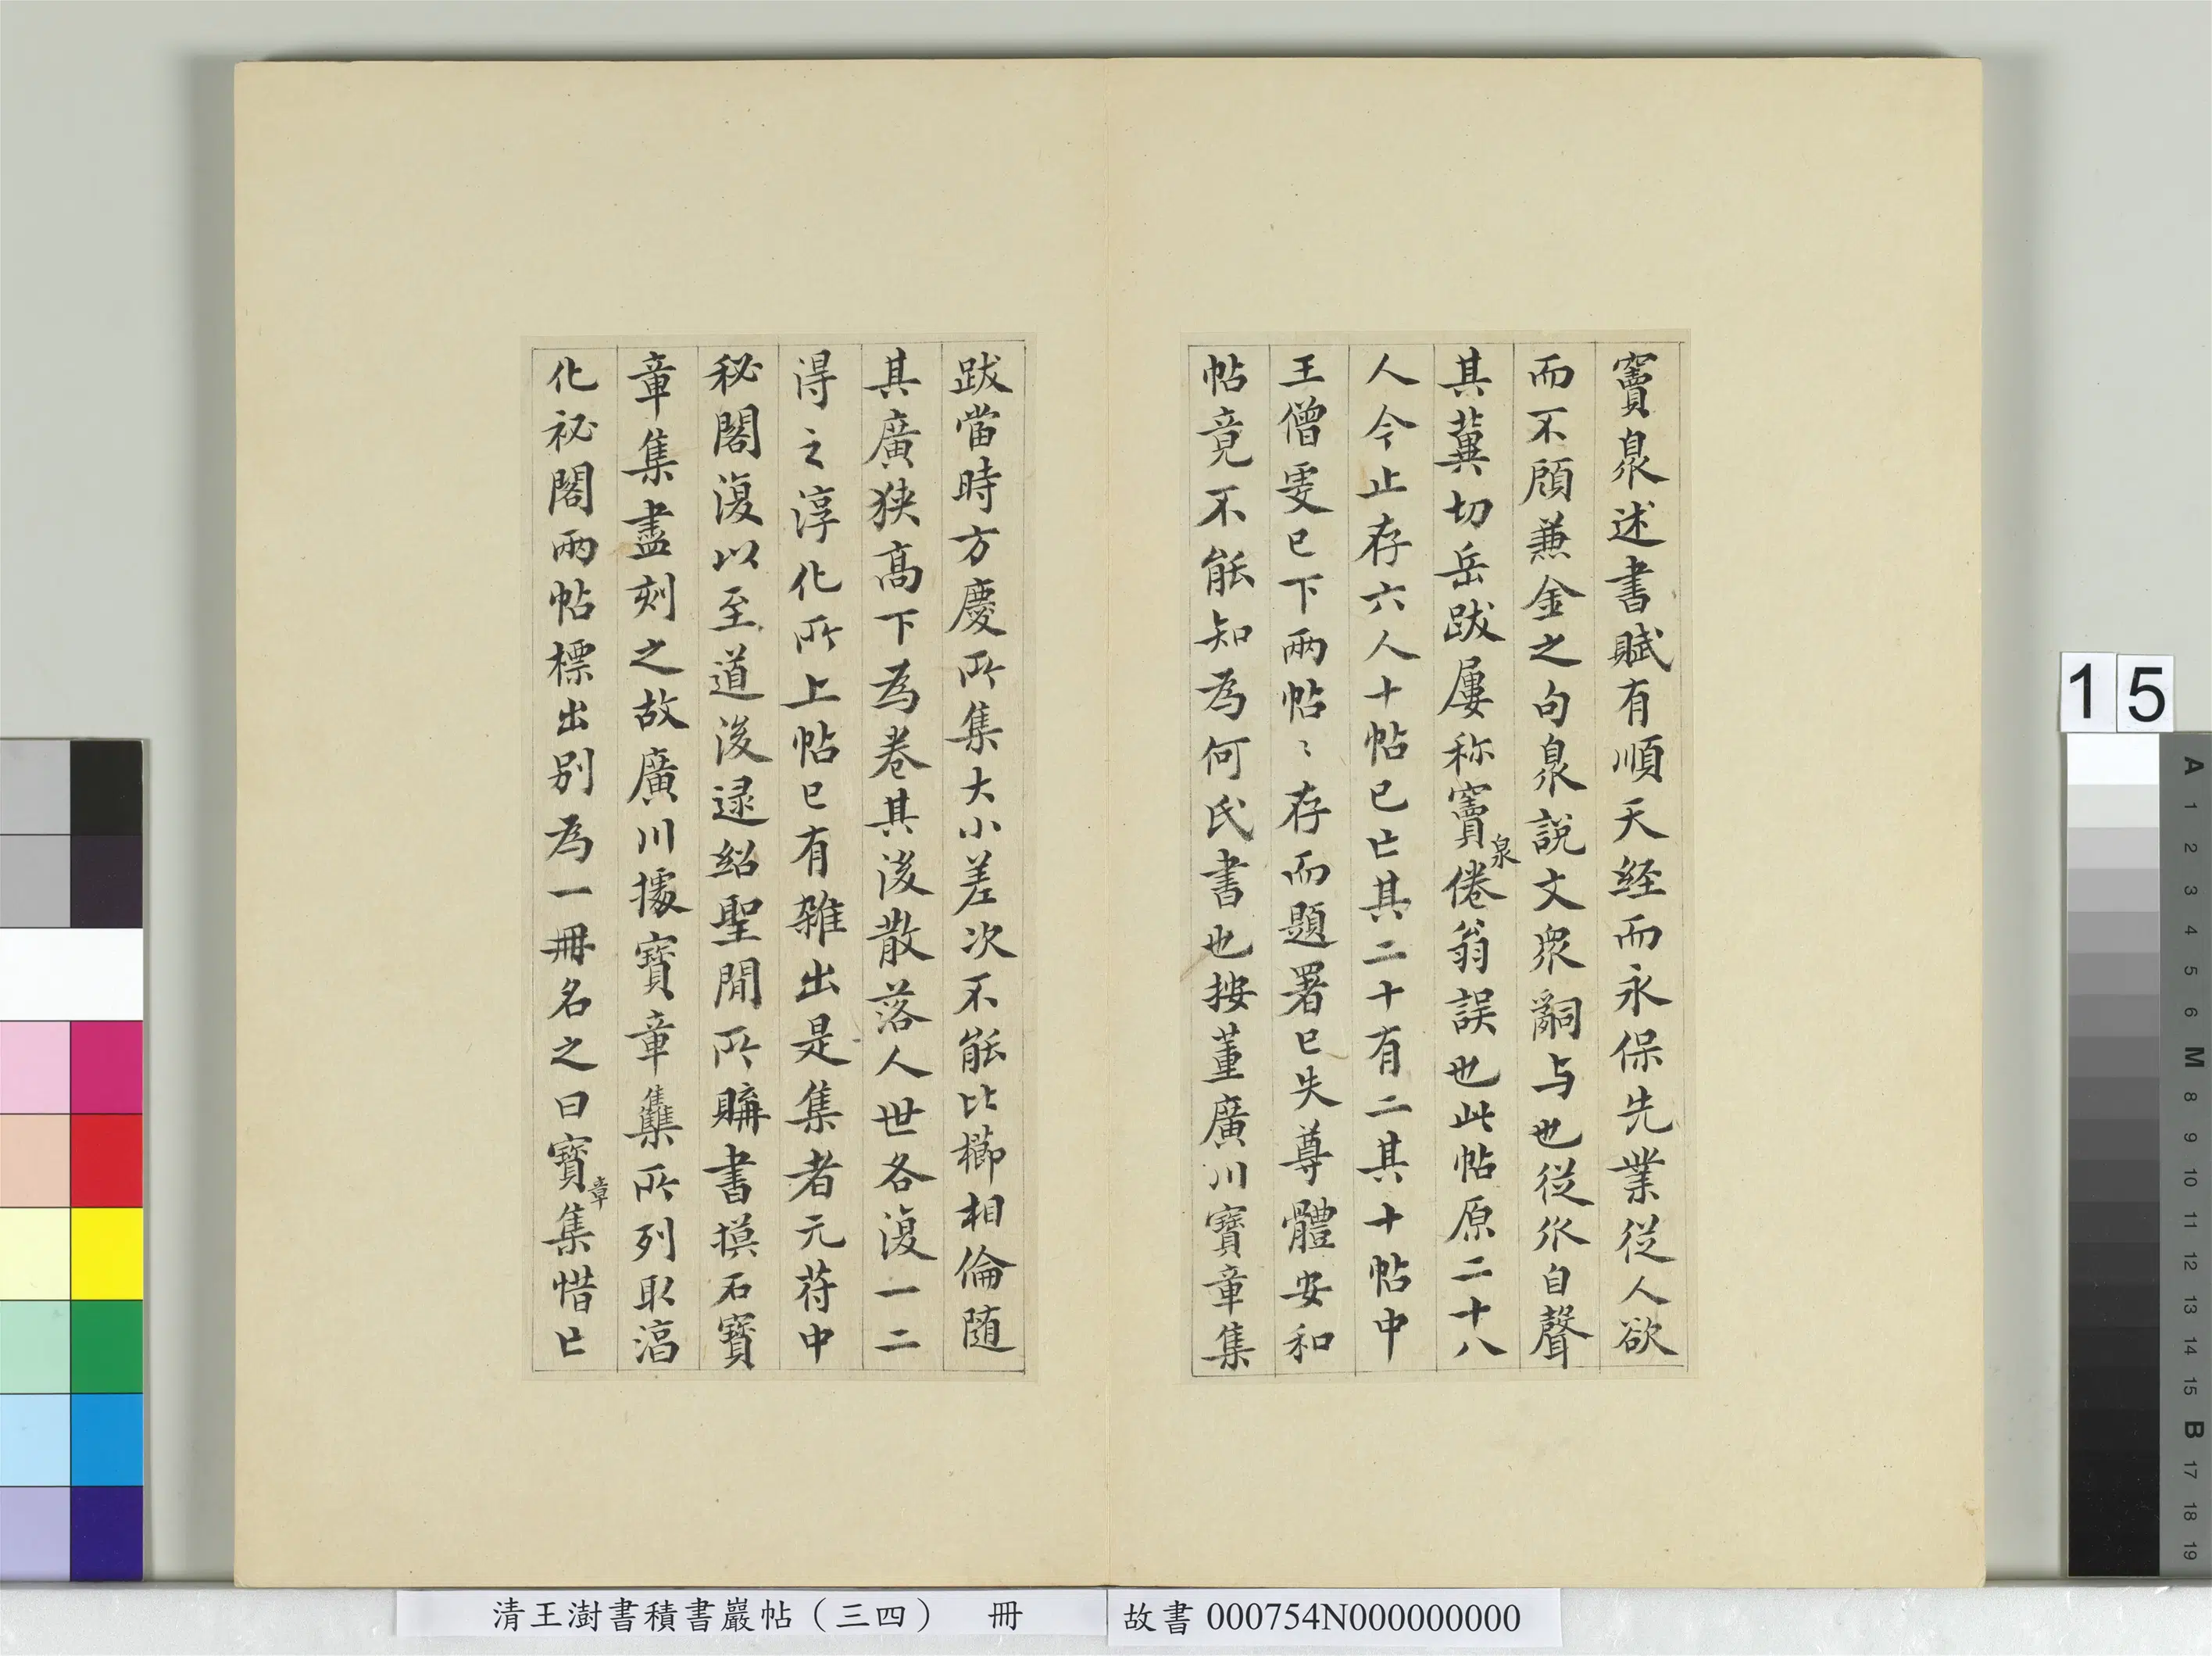 竇臮述書賦有順天経而永保先業從人欲
而不顧兼金之句臮説文衆辭与也従㐺自聲
其冀切岳跋屢称竇泉倦翁誤也此帖原二十八
人今止存六人十帖已亡其二十有二其十帖中
王僧䖍已下兩帖〻存而題署已失尊體安和
帖竟不能知為何氏書也按董廣川寶章集
跋當時方慶所集大小差次不能比櫛相倫随
其廣狹髙下為卷其後散落人世各復一二
得之淳化所上帖已有雜出是集者元苻中
秘閣復以至道後逯紹聖間所購書摸石寶
章集盡刻之故廣川據寶章雧所列取湻
化祕閣兩帖標出別為一冊名之曰寶章集惜亡
15
清王澍書積書巖帖（三四） 冊
故書 000754N000000000
A 1 2 3 4 5 6 M 8 9 10 11 12 13 14 15 B 17 18 19